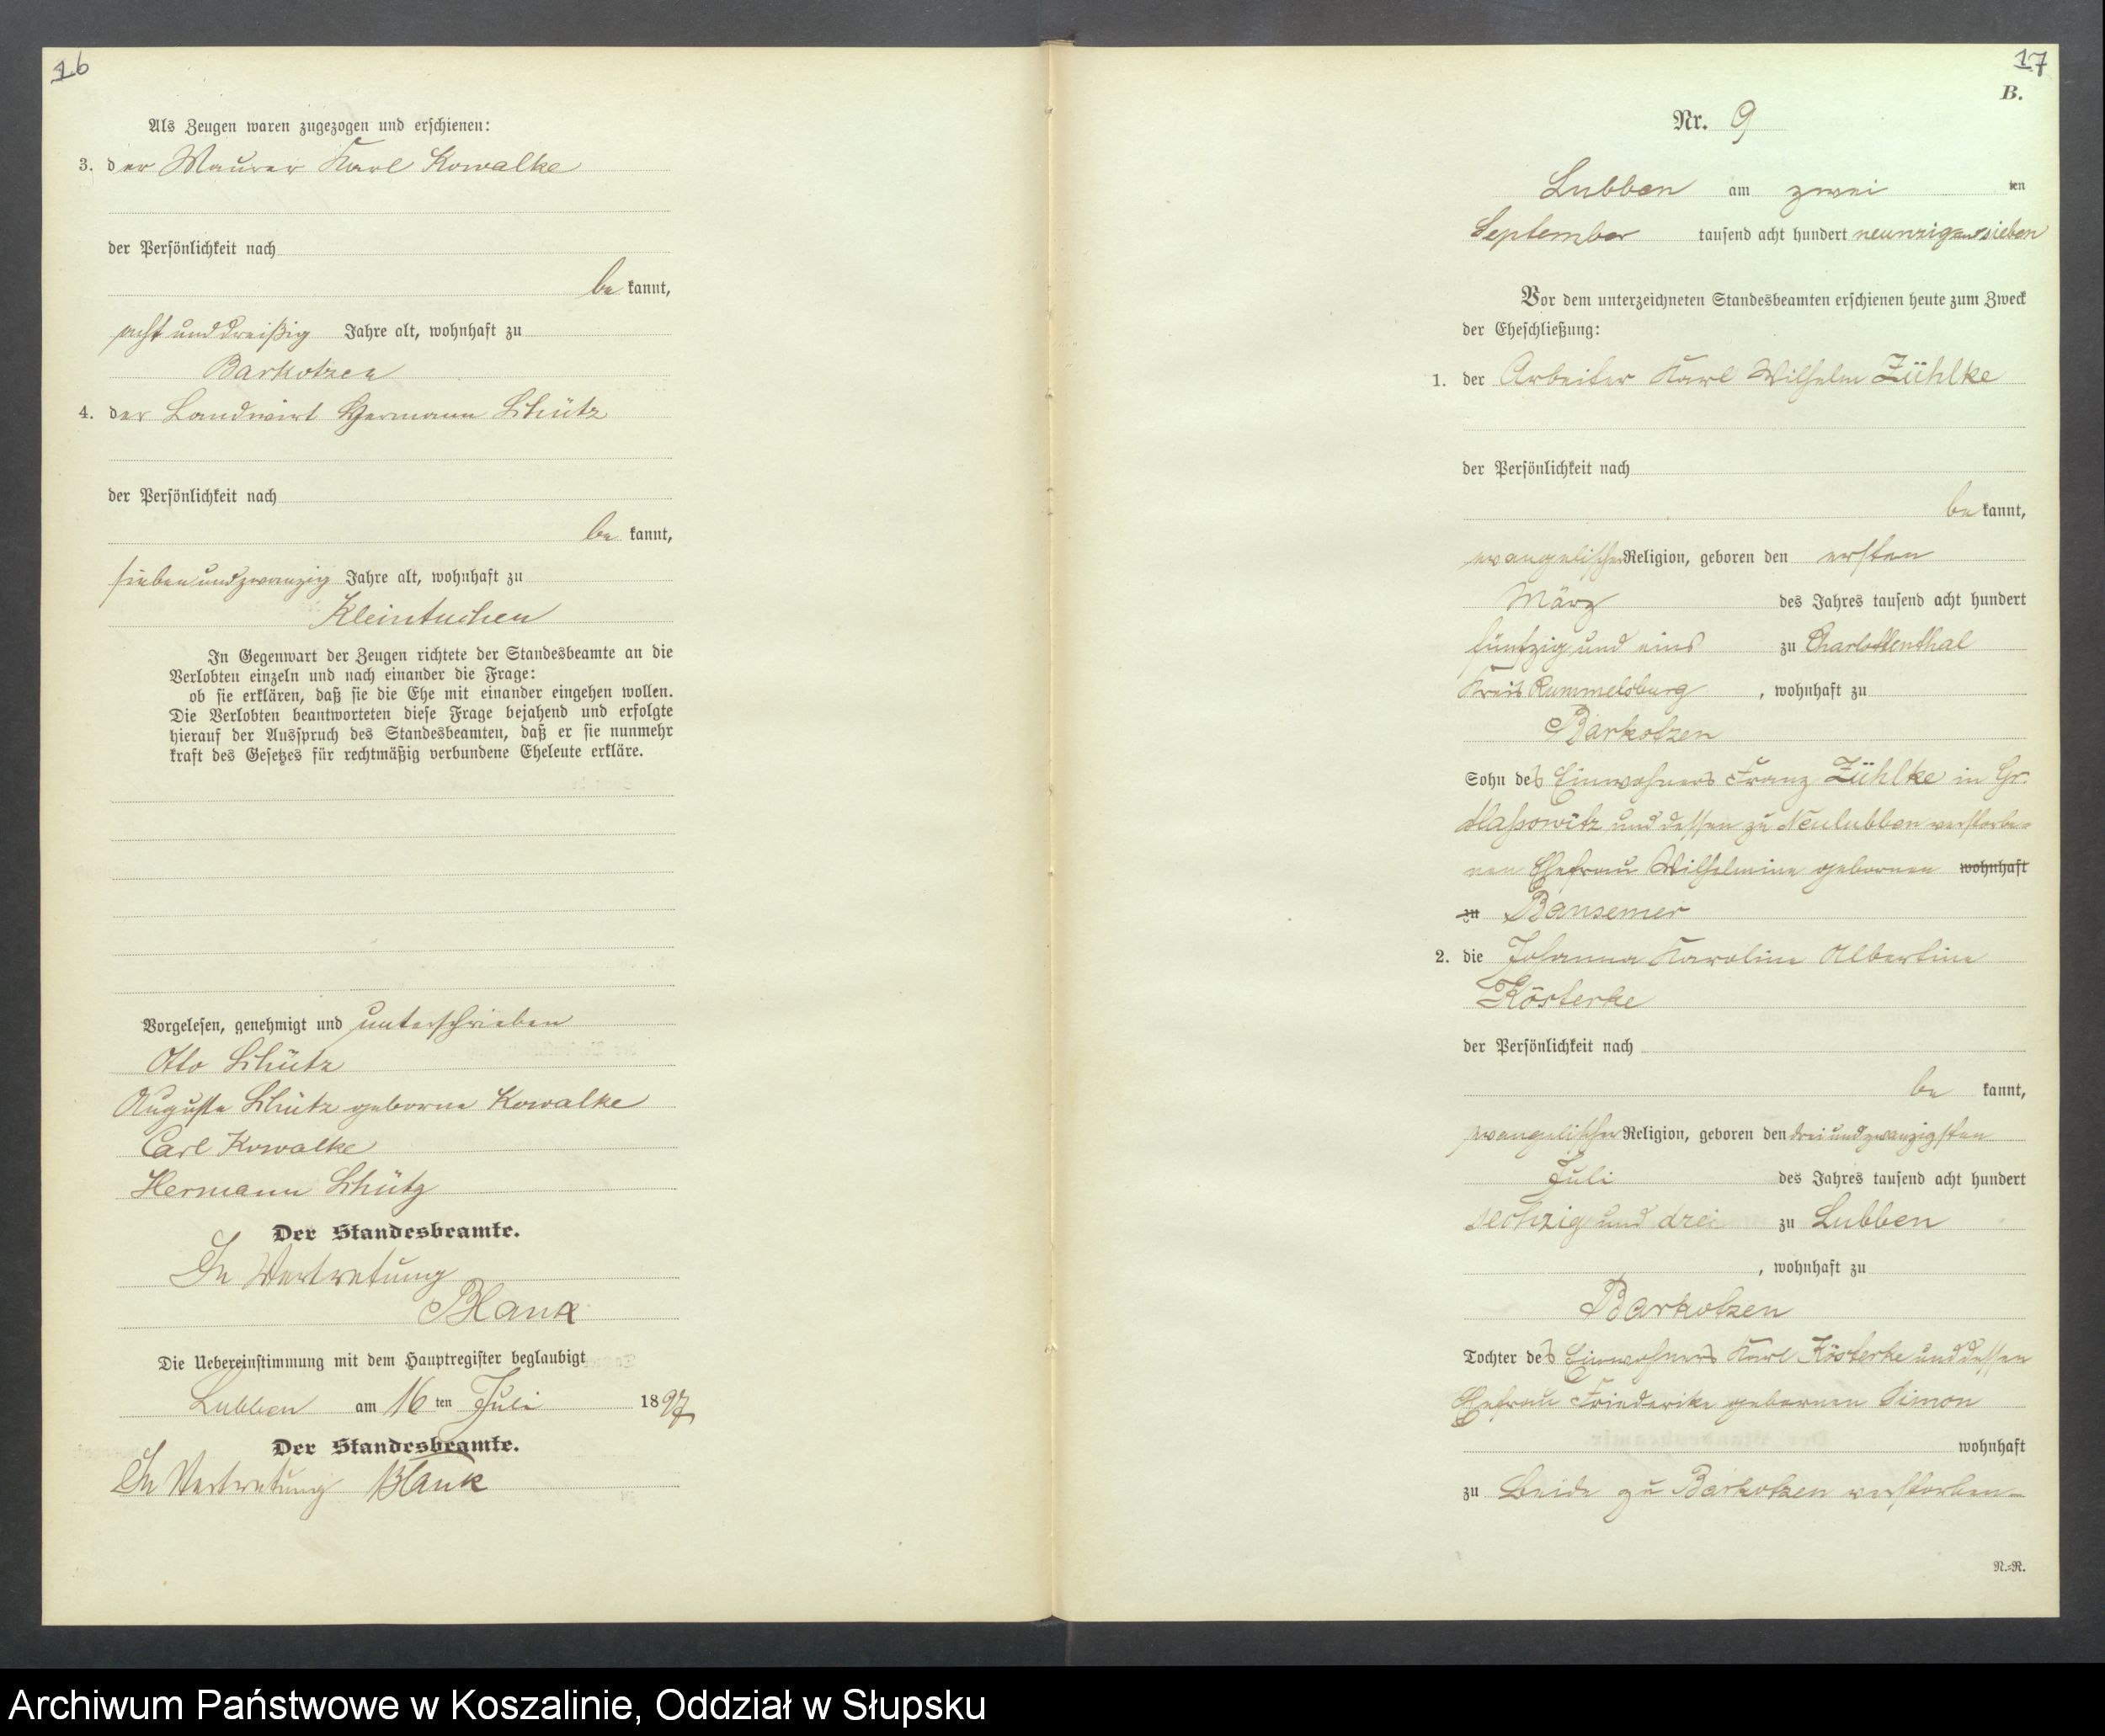 16
Als Zeugen waren zugezogen und erschienen:
3. der Maurer Karl Kowalke
der Persönlichkeit nach
be kannt,
acht und dreißig Jahre alt, wohnhaft zu
Barkotzen
4. der Landwirt Hermann Schütz
der Persönlichkeit nach
be kannt,
siebenundzwanzig Jahre alt, wohnhaft zu
Kleintuchen
In Gegenwart der Zeugen richtete der Standesbeamte an die
Verlobten einzeln und nach einander die Frage:
ob sie erklären, daß sie die Ehe mit einander eingehen wollen.
Die Verlobten beantworteten diese Frage bejahend und erfolgte
hierauf der Ausspruch des Standesbeamten, daß er sie nunmehr
kraft des Gesetzes für rechtmäßig verbundene Eheleute erkläre.
Vorgelesen, genehmigt und unterschrieben
Otto Schütz
Auguste Schütz geborne Kowalke
Carl Kowalke
Hermann Schütz
Der Standesbeamte.
In Vertretung
Blank
Die Uebereinstimmung mit dem Hauptregister beglaubigt
Lubben am 16 ten Juli 1897
Der Standesbeamte.
In Vertretung Blank
17
B.
Nr. 9
Lubben am zwei ten
September tausend acht hundert neunzig und sieben
Vor dem unterzeichneten Standesbeamten erschienen heute zum Zweck
der Eheschließung:
1. der Arbeiter Karl Wilhelm Zühlke
der Persönlichkeit nach
be kannt,
evangelischer Religion, geboren den ersten
März des Jahres tausend acht hundert
fünfzig und eins zu Charlottenthal
Kreis Rummelsburg , wohnhaft zu
Barkotzen
Sohn des Einwohners Franz Zühlke in Gr.
Massowitz und dessen zu Neulubben verstorbe=
nen Ehefrau Wilhelmine gebornen wohnhaft
zu Bansemer
2. die Johanna Karoline Albertine
Kösterke
der Persönlichkeit nach
be kannt,
evangelischer Religion, geboren den dreiundzwanzigsten
Juli des Jahres tausend acht hundert
sechzig und drei zu Lubben
, wohnhaft zu
Barkotzen
Tochter des Einwohners Karl Kösterke und dessen
Ehefrau Friederike gebornen Simon
wohnhaft
zu Beide zu Barkotzen verstorben-
N.=R.
Archiwum Państwowe w Koszalinie, Oddział w Słupsku